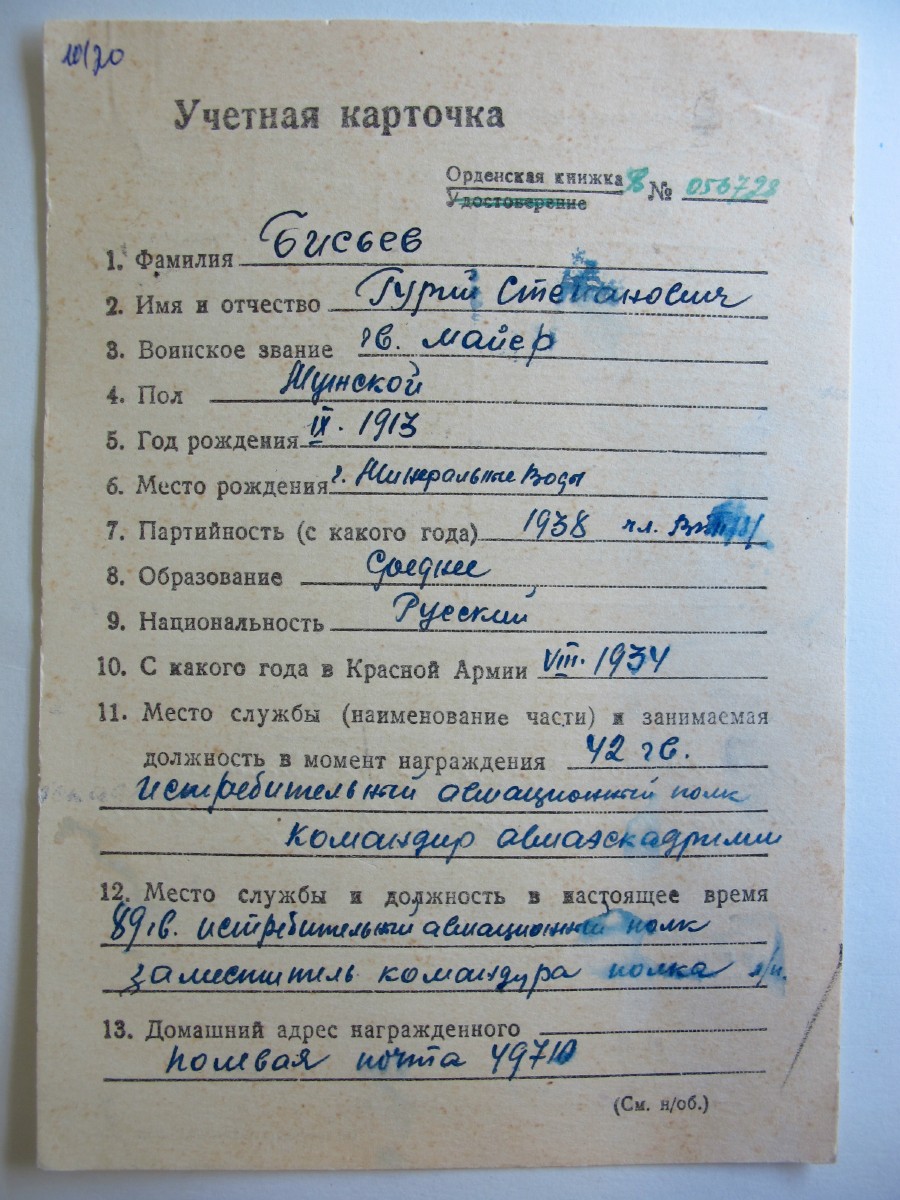 10/20
Учетная карточка
Орденская книжка В № 056728
Удостоверение
1. Фамилия Бисьев
2. Имя и отчество Гурий Степанович
3. Воинское звание гв. майер
4. Пол Мужской
5. Год рождения IX. 1913
6. Место рождения г. Минеральные Воды
7. Партийность (с какого года) 1938 чл.
8. Образование Среднее
9. Национальность Русский
10. С какого года в Красной Армии VIII. 1934
11. Место службы (наименование части) и занимаемая
должность в момент награждения 42 гв.
истребительный авиационный полк
командир авиаэскадрилии
12. Место службы и должность в настоящее время
89 гв. истребительный авиационный полк
заместитель командира полка
13. Домашний адрес награжденного
полевая почта 49710
(См. н/об.)